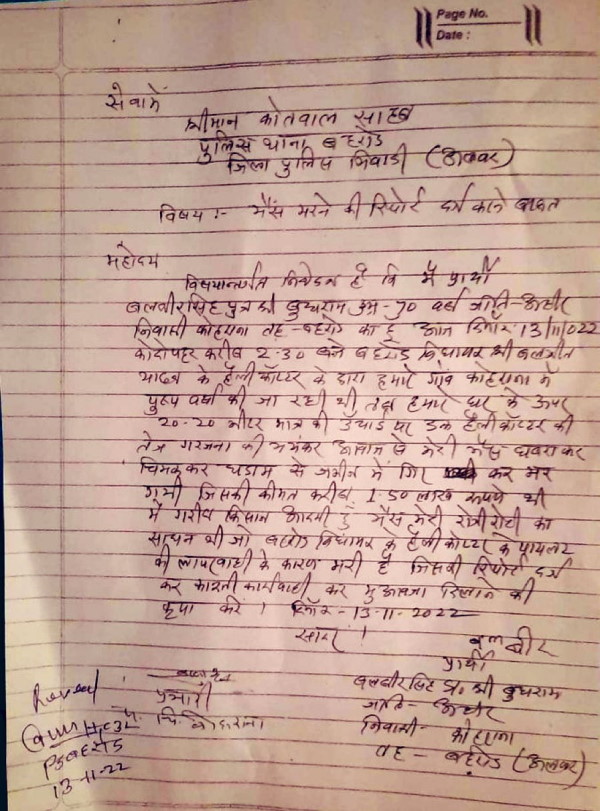 Page No.
Date :
सेवामें
श्रीमान कोतवाल साहब
पुलिस थाना बहरोड
जिला पुलिस भिवाडी (अलवर)
विषय :- भैंस मरने की रिपोर्ट दर्ज कराने बाबत
महोदय
विषयान्तर्गत निवेदन है कि मैं प्रार्थी
बलवीरसिंह पुत्र श्री बुधराम उम्र-70 वर्ष जाति-अहीर
निवासी कोहराना तह-बहरोड का हूं आज दिनांक-13/11/022
को दोपहर करीब 2-30 बजे बहरोड विधायक श्री बलजीत
यादव के हैलीकॉप्टर के द्वारा हमारे गांव कोहराना में
पुष्प वर्षा की जा रही थी तब हमारे घर के ऊपर
20-20 मीटर मात्र की उंचाई पर उक्त हैलीकॉप्टर की
तेज गरजना की भयंकर आवाज से मेरी भैंस घबरा कर
चिमक कर धडाम से जमीन में गिर कर मर
गयी जिसकी कीमत करीब 1-50 लाख रूपये थी
मैं गरीब किसान आदमी हूं भैंस मेरी रोजी रोटी का
साधन थी जो बहरोड विधायक के हैलीकॉप्टर के पायलट
की लापरवाही के कारण मरी है जिसकी रिपोर्ट दर्ज
कर कानूनी कार्यवाही कर मुआवजा दिलाने की
कृपा करें । दिनांक-13-11-2022
सादर ।
बलबीर
प्रार्थी
बलवीरसिंह S/o श्री बुधराम
जाति- अहीर
निवासी- कोहराना
तह - बहरोड (अलवर)
प्रभारी
13-11-22